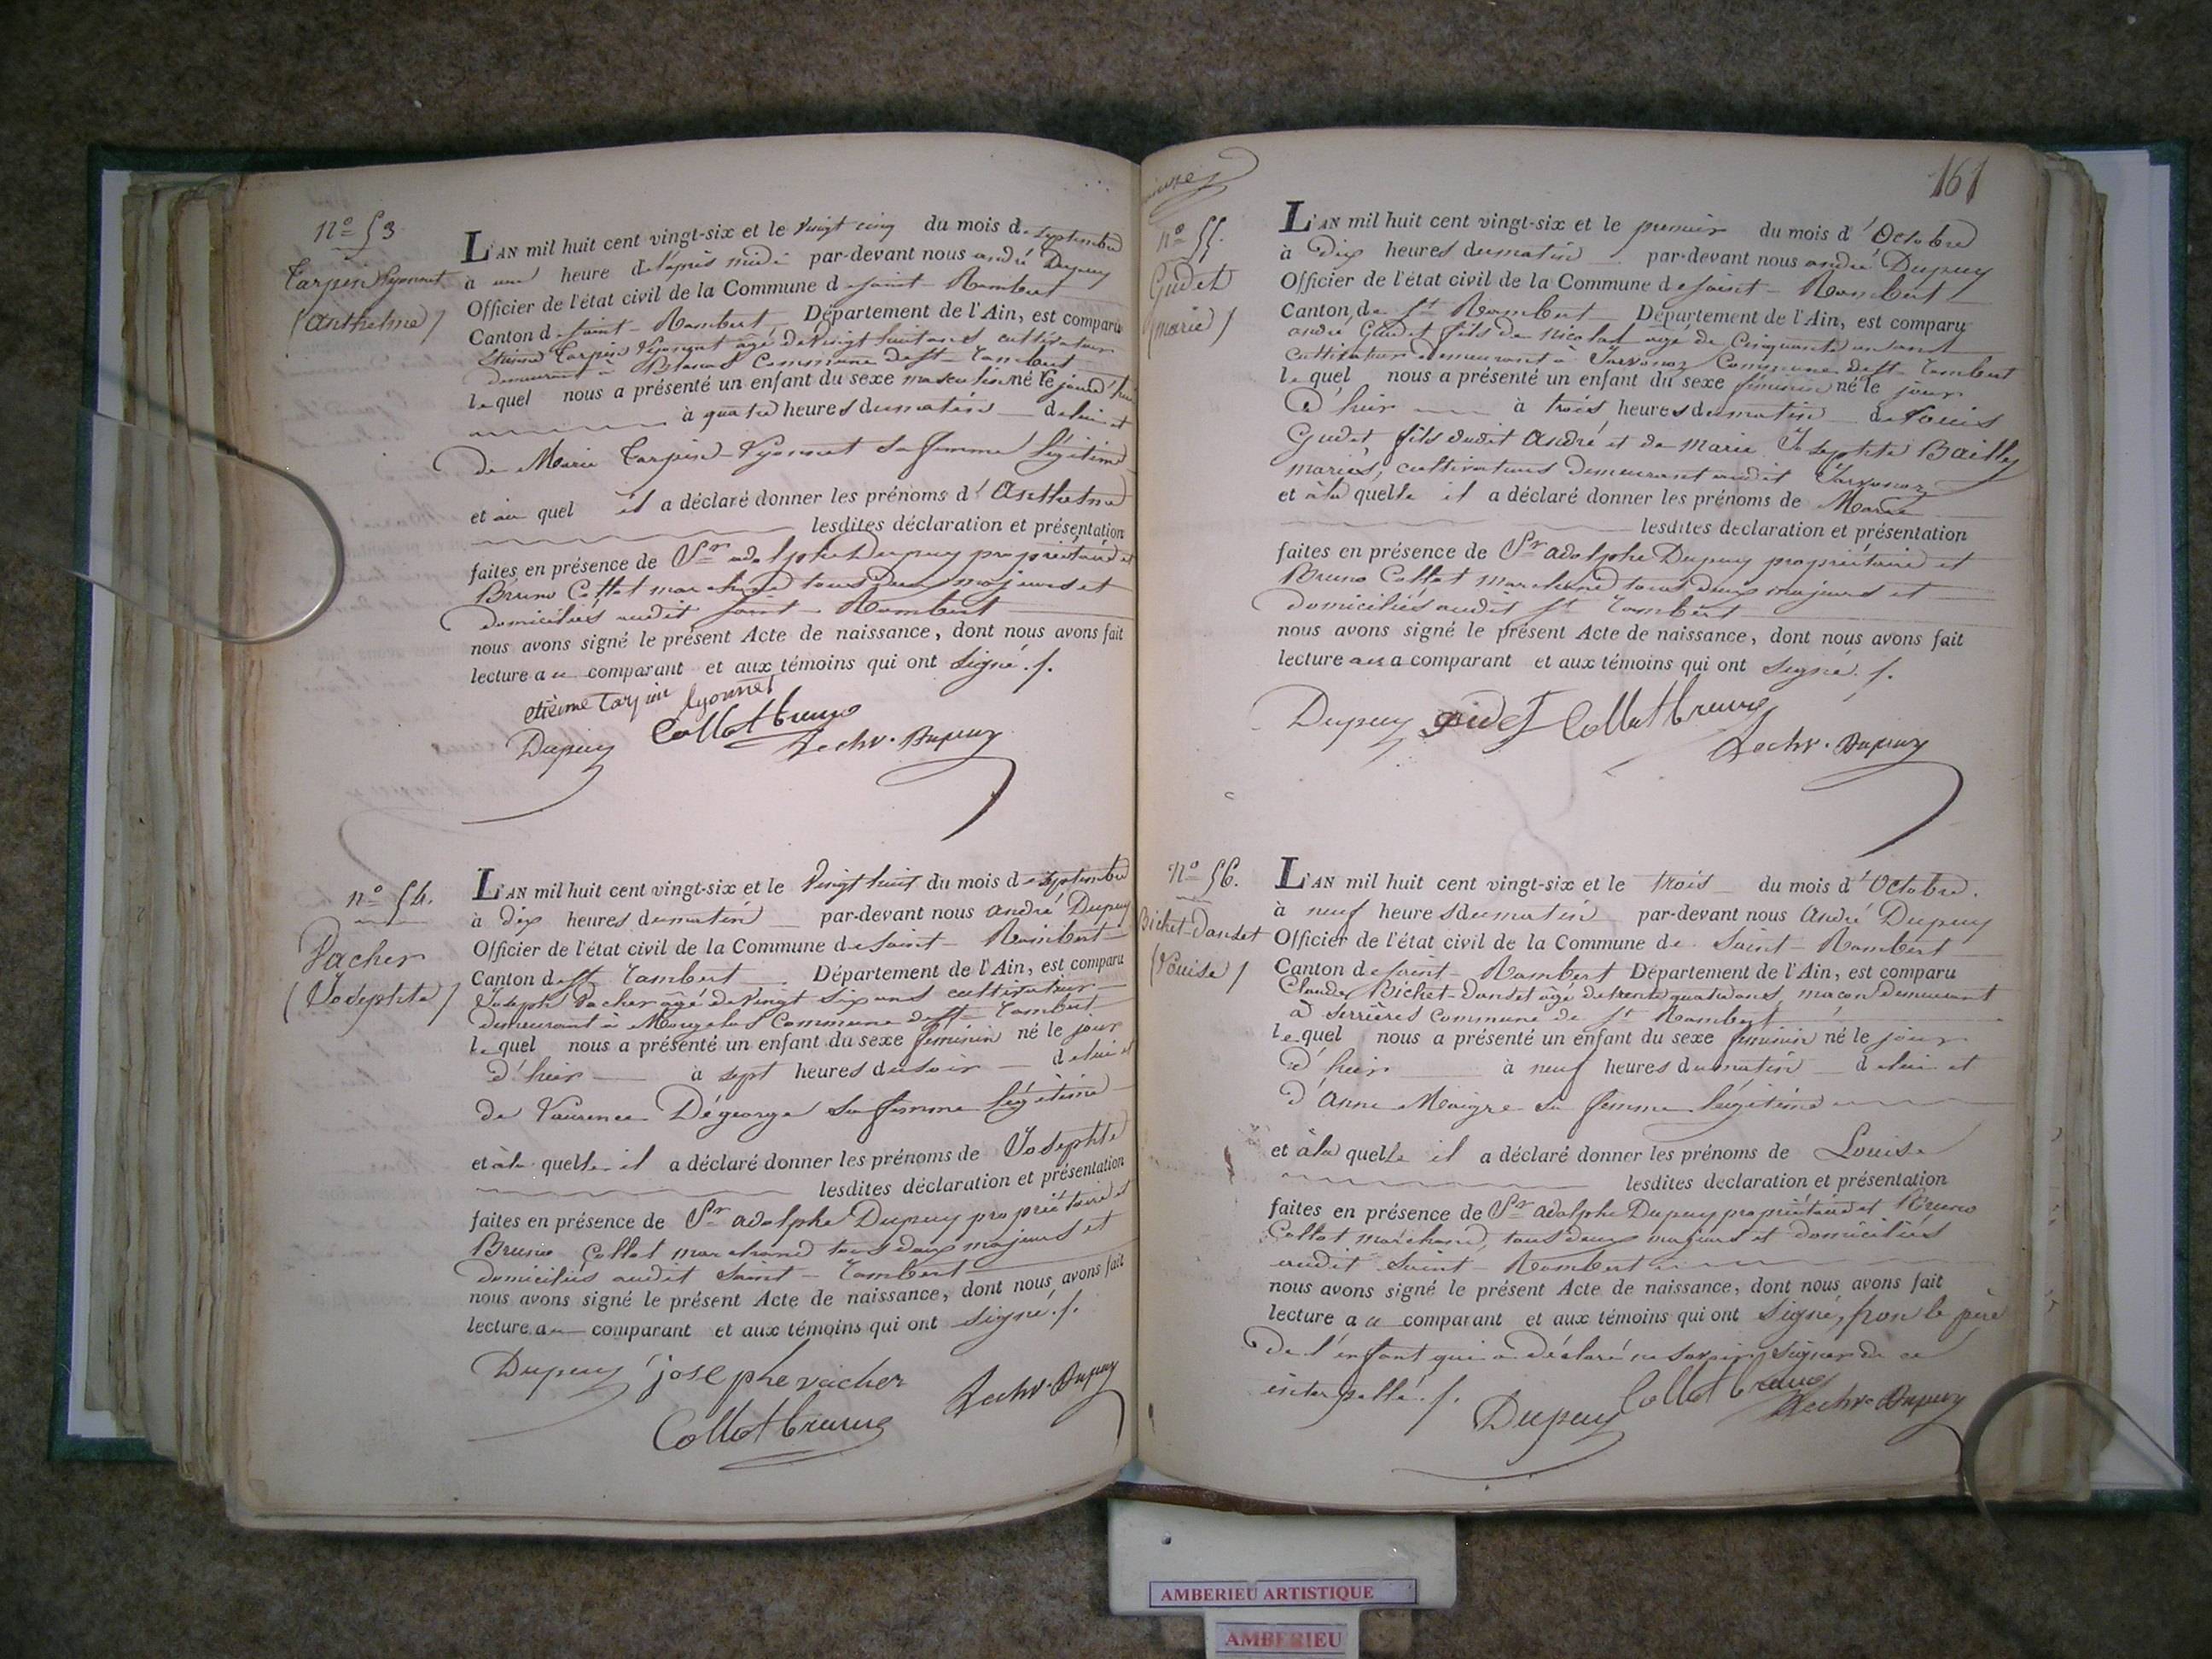 n° 53
Tarpin Lyonnet
(Anthelme)
L'AN mil huit cent vingt-six et le vingt cinq du mois de septembre
à une heure de l'après midi par-devant nous andré Dupuy
Officier de l'état civil de la Commune de saint-Rambert
Canton de saint-Rambert Département de l'Ain, est comparu
Etienne Tarpin Lyonnet agé de vingt huit ans cultivateur
demeurant à Blanas Commune de St Rambert
lequel nous a présenté un enfant du sexe masculin né le jourd'hui
à quatre heures du matin de lui et
de Marie Tarpin-Lyonnet sa femme légitime
et au quel il a déclaré donner les prénoms d'Anthelme
lesdites déclaration et présentation
faites en présence de Sr adolphe Dupuy propriétaire et
Bruno Collot marchand tous deux majeurs et
domiciliés audit saint-Rambert
nous avons signé le présent Acte de naissance, dont nous avons fait
lecture au comparant et aux témoins qui ont signé ./.
etienne tarpin lyonnet
Dupuy Collot bruno
n° 54.
Vacher
(Josephte)
L'AN mil huit cent vingt-six et le vingt huit du mois de septembre
à dix heures du matin par-devant nous andré Dupuy
Officier de l'état civil de la Commune de Saint-Rambert
Canton de St Rambert Département de l'Ain, est comparu
Joseph Vacher âgé de vingt six ans cultivateur
demeurant à Mongelas Commune de St Rambert
lequel nous a présenté un enfant du sexe féminin né le jour
d'hier à sept heures du soir de lui et
de Laurence Dégeorge sa femme légitime
et à la quelle il a déclaré donner les prénoms de Josephte
lesdites déclaration et présentation
faites en présence de Sr adolphe Dupuy propriétaire et
Bruno Collot marchand tous deux majeurs et
domiciliés audit Saint-Rambert
nous avons signé le présent Acte de naissance, dont nous avons fait
lecture au comparant et aux témoins qui ont signé ./.
Dupuy josephe vacher
Collot bruno
161
n° 55.
Gudet
(marie)
L'AN mil huit cent vingt-six et le premier du mois d'Octobre
à dix heures du matin par-devant nous andré Dupuy
Officier de l'état civil de la Commune de saint-Rambert
Canton de St Rambert Département de l'Ain, est comparu
andré Gudet fils de nicolas agé de Cinquante un ans
cultivateur demeurant à Javornoz Commune de St Rambert
lequel nous a présenté un enfant du sexe féminin né le jour
d'hier à trois heures du matin de Louis
Gudet fils dudit André et de marie Josephte Bailly
mariés, cultivateurs demeurant audit Javornoz
et à la quelle il a déclaré donner les prénoms de Marie
lesdites declaration et présentation
faites en présence de Sr adolphe Dupuy propriétaire et
Bruno Collot marchand tous deux majeurs et
domiciliés audit St Rambert
nous avons signé le présent Acte de naissance, dont nous avons fait
lecture au comparant et aux témoins qui ont signé ./.
Dupuy gudet Collot bruno
n° 56.
Bichet-Dandet
(Louise)
L'AN mil huit cent vingt-six et le trois du mois d'Octobre.
à neuf heures du matin par-devant nous André Dupuy
Officier de l'état civil de la Commune de Saint-Rambert
Canton de saint-Rambert Département de l'Ain, est comparu
Claude Bichet-Dandet âgé de trente quatre ans, maçon demeurant
à Serrières Commune de St Rambert
lequel nous a présenté un enfant du sexe féminin né le jour
d'hier à neuf heures du matin de lui et
d'Anne Maigre sa femme légitime
et à la quelle il a déclaré donner les prénoms de Louise
lesdites declaration et présentation
faites en présence de Sr adolphe Dupuy propriétaire et Bruno
Collot marchand, tous deux majeurs et domiciliés
audit Saint-Rambert
nous avons signé le présent Acte de naissance, dont nous avons fait
lecture au comparant et aux témoins qui ont signé, non le père
de l'enfant qui a déclaré ne savoir signer de ce
interpellé ./.
Dupuy Collot bruno
AMBERIEU ARTISTIQUE
AMBERIEU